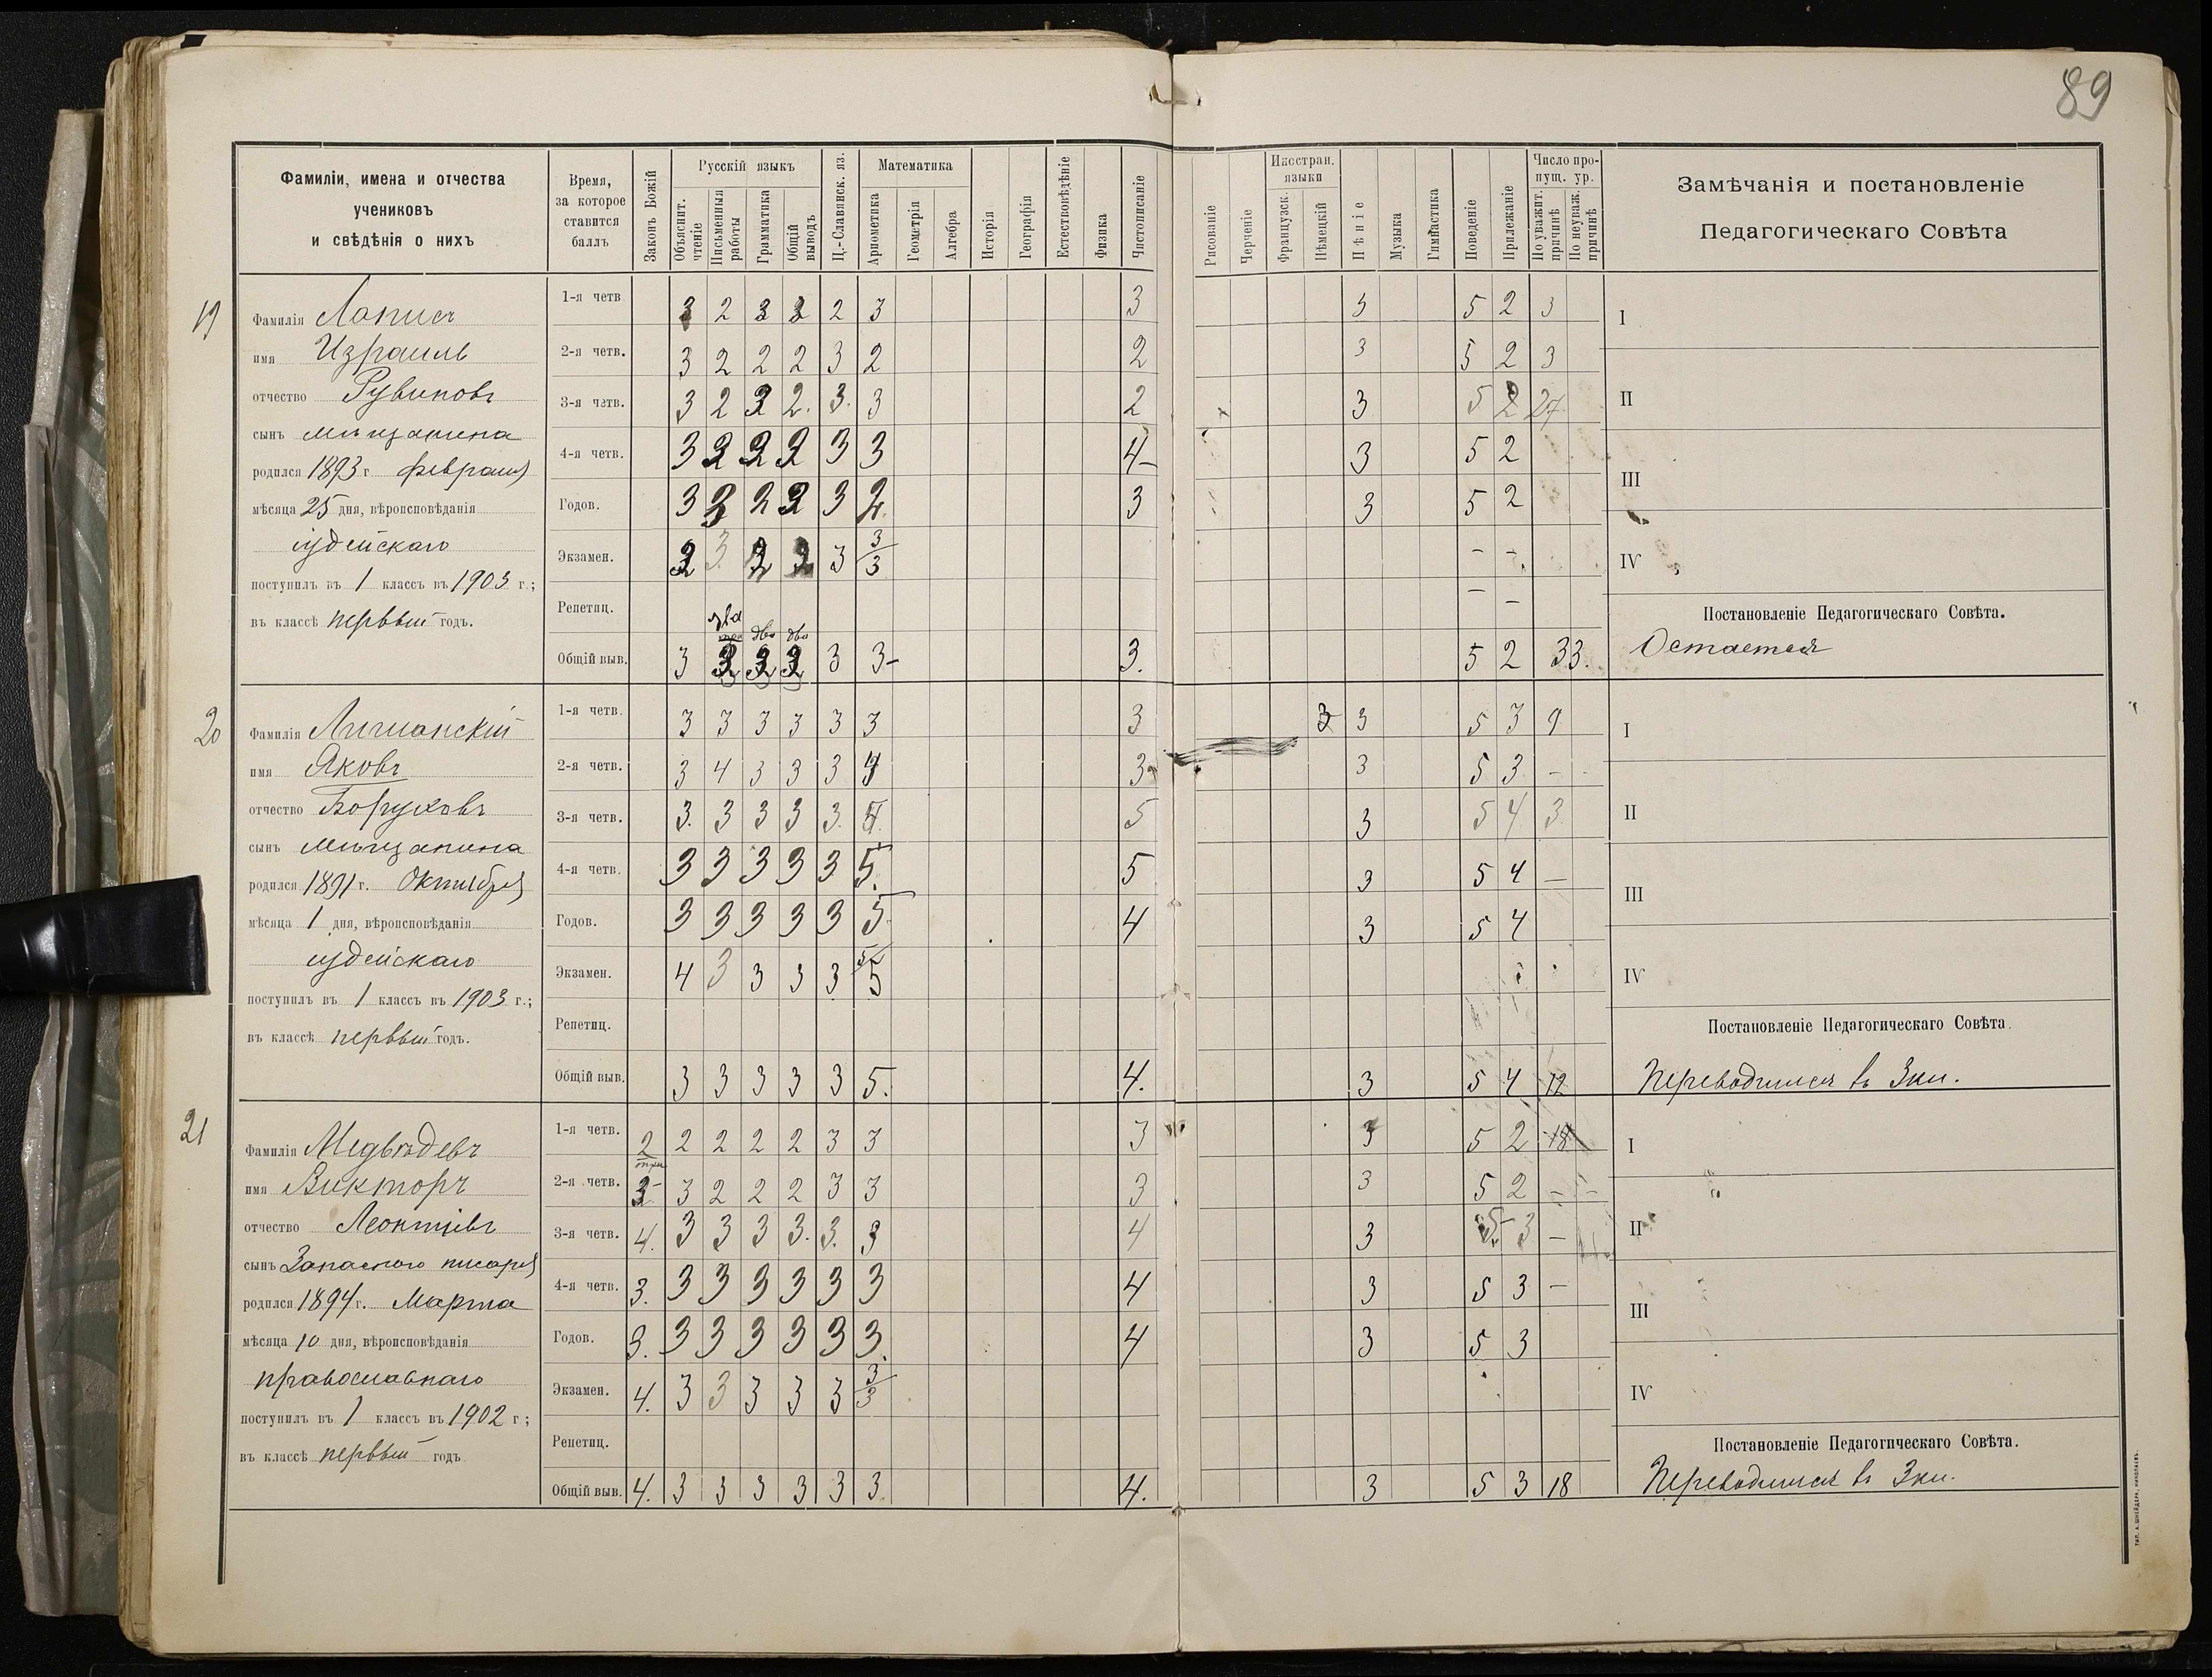 89
Фамиліи, имена и отчества
учениковъ
и свѣдѣнія о нихъ
Время,
за которое
ставится
баллъ
Законъ Божій
Русскій языкъ
Объяснит. чтеніе
Письменныя работы
Грамматика
Общій выводъ
Ц.-Славянск. яз.
Математика
Ариѳметика
Геометрія
Алгебра
Исторія
Географія
Естествовѣдѣніе
Физика
Чистописаніе
Рисованіе
Черченіе
Иностран. языки
Французск.
Нѣмецкій
Пѣніе
Музыка
Гимнастика
Поведеніе
Прилежаніе
Число пропущ. ур.
По уважит. причинѣ
По неуваж. причинѣ
Замѣчанія и постановленіе
Педагогическаго Совѣта
19
Фамилія Лаписъ
имя Израиль
отчество Рувиновъ
сынъ мѣщанина
родился 1893 г. февраля
мѣсяца 25 дня, вѣроисповѣданія
іудейскаго
поступилъ въ 1 классъ въ 1903 г.;
въ классѣ первый годъ.
1-я четв. 3 2 3 3 2 3 3 3 5 2 3
2-я четв. 3 2 2 2 3 2 2 3 5 2 3
3-я четв. 3 2 2 2. 3. 3 2 3 5 2 27
4-я четв. 3 2 2 2 3 3 4- 3 5 2
Годов. 3 2 2 3 2 3 3 5 2
Экзамен. 3 3 3/3
Репетиц.
два два два
Общій выв. 3 3 3- 3. 5 2 33.
I
II
III
IV
Постановленіе Педагогическаго Совѣта.
Остается
20
Фамилія
имя Яковъ
отчество Боруховъ
сынъ мѣщанина
родился 1891 г. Октября
мѣсяца 1 дня, вѣроисповѣданія
іудейскаго
поступилъ въ 1 классъ въ 1903 г.;
въ классѣ первый годъ.
1-я четв. 3 3 3 3 3 3 3 3 3 5 3 9
2-я четв. 3 4 3 3 3 4 3 3 5 3 —
3-я четв. 3. 3 3 3 3. 5 3 5 4 3.
4-я четв. 3 3 3 3 3 5. 5 3 5 4 —
Годов. 3 3 3 3 3 5. 4 3 5 4
Экзамен. 4 3 3 3 3 5/5
Репетиц.
Общій выв. 3 3 3 3 3 5. 4. 3 5 4 12
I
II
III
IV
Постановленіе Педагогическаго Совѣта.
Переводится въ 3 кл.
21
Фамилія Медвѣдевъ
имя Викторъ
отчество Леонтіевъ
сынъ Запаснаго писаря
родился 1894 г. Марта
мѣсяца 10 дня, вѣроисповѣданія
православнаго
поступилъ въ 1 классъ въ 1902 г;
въ классѣ первый годъ
1-я четв. 2 2 2 2 2 3 3 3 3 5 2 18
три
2-я четв. 3 3 2 2 2 3 3 3 3 5 2 — —
3-я четв. 4. 3 3 3 3. 3. 3 4 3 5 3 —
4-я четв. 3. 3 3 3 3 3 3 4 3 5 3 —
Годов. 3. 3 3 3 3 3 3. 4 3 5 3
Экзамен. 4. 3 3 3 3 3 3/3
Репетиц.
Общій выв. 4. 3 3 3 3 3 3. 4. 3 5 3 18
I
II
III
IV
Постановленіе Педагогическаго Совѣта.
Переводится въ 3 кл.
ТИП. А. ШНЕЙДЕРА, НИКОЛАЕВЪ.